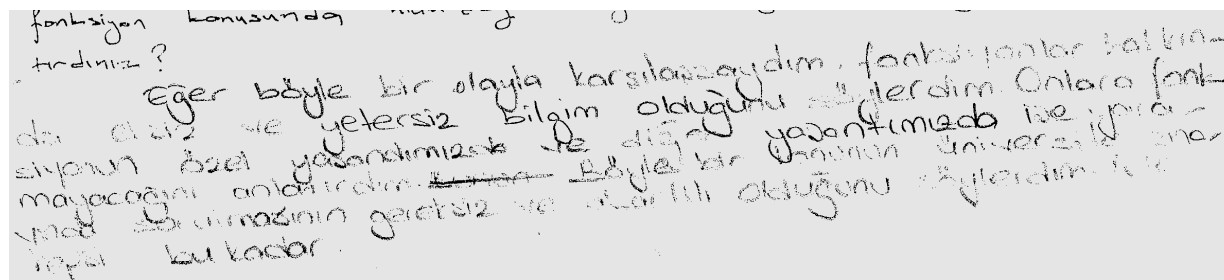 fonksiyon konusunda
tırdınız?
Eğer böyle bir olayla karşılaşsaydım. fonksiyonlar hakkın-
da eksiz ve yetersiz bilgim olduğunu söylerdim Onlara fonk-
siyonun özel yaşandımızda ve diğer yaşantımızda ise yara-
mayacağını anlatırdım. Böyle bir konunun üniversite sına-
vında sorulmasının gereksiz ve olduğunu söylerdim. İşte
bu kadar.